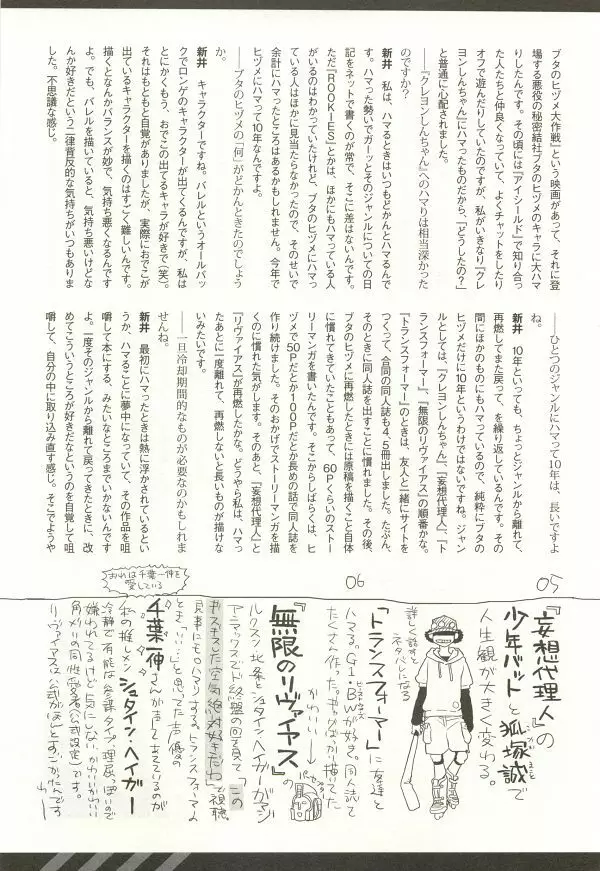 ブタのヒヅメ大作戦』という映画があって、それに登
場する悪役の秘密結社ブタのヒヅメのキャラに大ハマ
りしたんです。その頃には『アイシールド』で知り合っ
た人たちと仲良くなっていて、よくチャットをしたり
オフで遊んだりしていたのですが、私がいきなり『クレ
ヨンしんちゃん』にハマったものだから、「どうしたの?」
と普通に心配されました。
――『クレヨンしんちゃん』へのハマりは相当深かった
のですか?
新井 私は、ハマるときはいつもどかんとハマるんで
す。ハマった勢いでガーッとそのジャンルについての日
記をネットで書くのが常で、そこに差はないんです。
ただ『ROOKIES』とかは、ほかにもハマっている人
がいるのはわかっていたけれど、ブタのヒヅメにハマっ
ている人はほかに見当たらなかったので、そのせいで
余計にハマったところはあるかもしれません。今年で
ヒヅメにハマって10年なんですよ。
――ブタのヒヅメの「何」がどかんときたのでしょう
か。
新井 キャラクターですね。バレルというオールバッ
クでロンゲのキャラクターが出てくるんですが、私は
とにかくもう、おでこの出てるキャラが好きで(笑)。
それはもともと自覚がありましたが、実際におでこが
出ているキャラクターを描くのはすごく難しいんです。
描くとなんかバランスが妙で、気持ち悪くなるんです
よ。でも、バレルを描いていると、気持ち悪いけどな
んか好きだという二律背反的な気持ちがいつもありま
した。不思議な感じ。
――ひとつのジャンルにハマって10年は、長いですよ
ね。
新井 10年といっても、ちょっとジャンルから離れて、
再燃してまた戻って、を繰り返しているんです。その
間にほかのものにもハマっているので、純粋にブタの
ヒヅメだけに10年というわけではないですね。ジャン
ルとしては、『クレヨンしんちゃん』、『妄想代理人』、『ト
ランスフォーマー』、『無限のリヴァイアス』の順番かな。
『トランスフォーマー』のときは、友人と一緒にサイトを
つくって、合同の同人誌も4、5冊出しました。たぶん、
そのときに同人誌を出すことに慣れました。その後、
ブタのヒヅメに再燃したときには原稿を描くこと自体
に慣れてきていたこともあって、60Pくらいのストー
リーマンガを書いたんです。そこからしばらくは、ヒ
ヅメで50Pだとか100Pだとか長めの話で同人誌を
作り続けました。そのおかげでストーリーマンガを描
くのに慣れた気がします。そのあと、『妄想代理人』と
『リヴァイアス』が再燃したかな。どうやら私は、ハマっ
たあとに一度離れて、再燃しないと長いものが描けな
いみたいです。
――一旦冷却期間的なものが必要なのかもしれま
せんね。
新井 最初にハマったときは熱に浮かされているとい
うか、ハマることに夢中になっていて、その作品を咀
嚼して本にする、みたいなところまでいかないんです
よ。一度そのジャンルから離れて戻ってきたときに、改
めてこういうところが好きだなというのを自覚して咀
嚼して、自分の中に取り込み直す感じ。そこでようや
05
『妄想代理人』の
少年バットと狐塚誠で
こづか まこと
人生観が大きく変わる。
詳しく話すと
ネタバレになる
06
「トランスフォーマー」に友達と
ハマる。G1・BWが好き。同人誌て
たくさん作った。
かわいい→
『無限のリヴァイアス』の
ルクスン・北条とシュタイン・ヘイガーがラジ
アニマックスでド終盤の回を見て「この
ギスギスした空気絶対好きだわ」で視聴。
見事にモロハマりする。トランスフォーマーの
とき「いい…」と思ってた声優の
千葉一伸さんが声をあててるのが
私の推しメン シュタイン・ヘイガー
冷静で有能な参謀タイプ(理屈っぽいので
嫌われてるけど気にしない、かわいいかわいい)
角メリの同性愛者(公式設定)です。
リヴァイアスは公式がほんとすごかったんです
おれは千葉一伸を
愛している